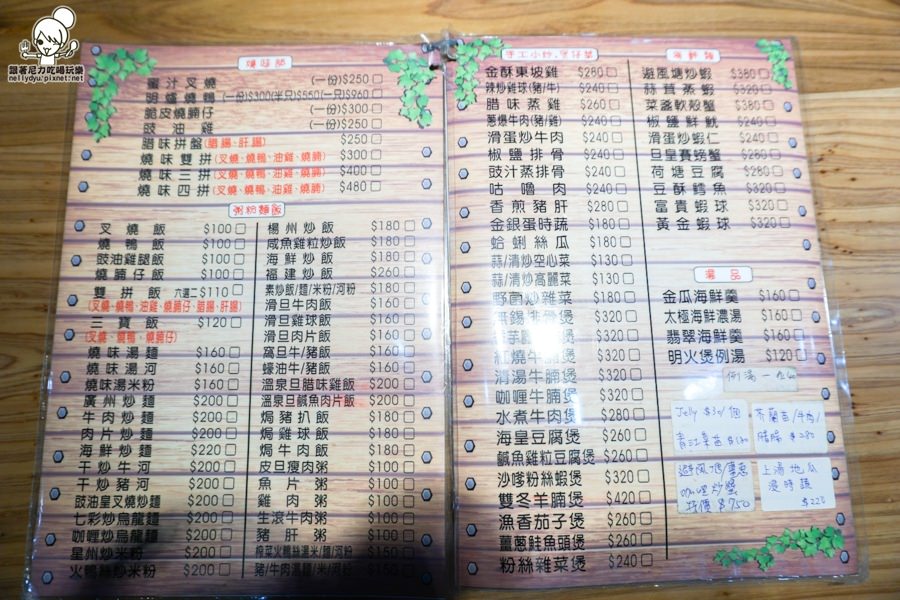 跟著尼力吃喝玩樂
nellydyu.pixnet.net
燒味部
蜜汁叉燒 (一份)$250
明爐燒鴨 (一份)$300(半只)$550(一只)$960
脆皮燒腩仔 (一份)$300
豉油雞 (一份)$250
腊味拼盤(腊腸、肝腸) $250
燒味雙拼(叉燒、燒鴨、油雞、燒腩) $300
燒味三拼(叉燒、燒鴨、油雞、燒腩) $400
燒味四拼(叉燒、燒鴨、油雞、燒腩) $480
粥粉麵飯
叉燒飯 $100
燒鴨飯 $100
豉油雞腿飯 $100
燒腩仔飯 $100
雙拼飯 六選二 $110
(叉燒、燒鴨、油雞、燒腩仔、腊腸、肝腸)
三寶飯 $120
(叉燒、燒鴨、燒腩仔)
燒味湯麵 $160
燒味湯河 $160
燒味湯米粉 $160
廣州炒麵 $200
牛肉炒麵 $200
肉片炒麵 $200
海鮮炒麵 $220
干炒牛河 $200
干炒豬河 $200
豉油皇叉燒炒麵 $200
七彩炒烏龍麵 $200
咖喱炒烏龍麵 $200
星州炒米粉 $200
火鴨絲炒米粉 $200
楊州炒飯 $180
咸魚雞粒炒飯 $180
海鮮炒飯 $180
福建炒飯 $260
素炒飯/麵/米粉/河粉 $180
滑旦牛肉飯 $180
滑旦雞球飯 $180
滑旦肉片飯 $180
窩旦牛/豬飯 $180
蠔油牛/豬飯 $180
溫泉旦腊味雞飯 $200
溫泉旦鹹魚肉片飯 $200
焗豬扒飯 $180
焗雞球飯 $180
焗牛肉飯 $180
皮旦瘦肉粥 $100
魚片粥 $100
雞肉粥 $100
生滾牛肉粥 $100
豬肝粥 $100
榨菜火鴨絲湯米/麵/河粉 $150
豬/牛肉湯麵/米/河粉 $150
手工小炒、煲仔菜
金酥東坡雞 $280
辣炒雞球(豬/牛) $240
腊味蒸雞 $260
蔥爆牛肉(豬/雞) $240
滑蛋炒牛肉 $240
椒鹽排骨 $240
豉汁蒸排骨 $240
咕嚕肉 $240
香煎豬肝 $280
金銀蛋時蔬 $180
蛤蜊絲瓜 $180
蒜/清炒空心菜 $130
蒜/清炒高麗菜 $130
野菌炒雜菜 $180
無錫排骨煲 $320
$320
紅燒牛腩煲 $320
清湯牛腩煲 $320
咖喱牛腩煲 $320
水煮牛肉煲 $280
海皇豆腐煲 $260
鹹魚雞粒豆腐煲 $260
沙嗲粉絲蝦煲 $320
雙冬羊腩煲 $420
漁香茄子煲 $260
薑蔥鮭魚頭煲 $260
粉絲雜菜煲 $240
海鮮類
避風塘炒蝦 $380
蒜茸蒸蝦 $320
菜盞軟殼蟹 $380
椒鹽鮮魷 $240
滑蛋炒蝦仁 $240
旦皇賽螃蟹 $280
荷塘豆腐 $280
豆酥鱈魚 $320
富貴蝦球 $320
黃金蝦球 $320
湯品
金瓜海鮮羹 $160
太極海鮮濃湯 $160
翡翠海鮮羹 $160
明火煲例湯 $120
例湯一
Jelly $30/個
芥蘭苗/牛肉/
$280
避風塘
咖哩炒蟹
特價$750
上湯地瓜
$220